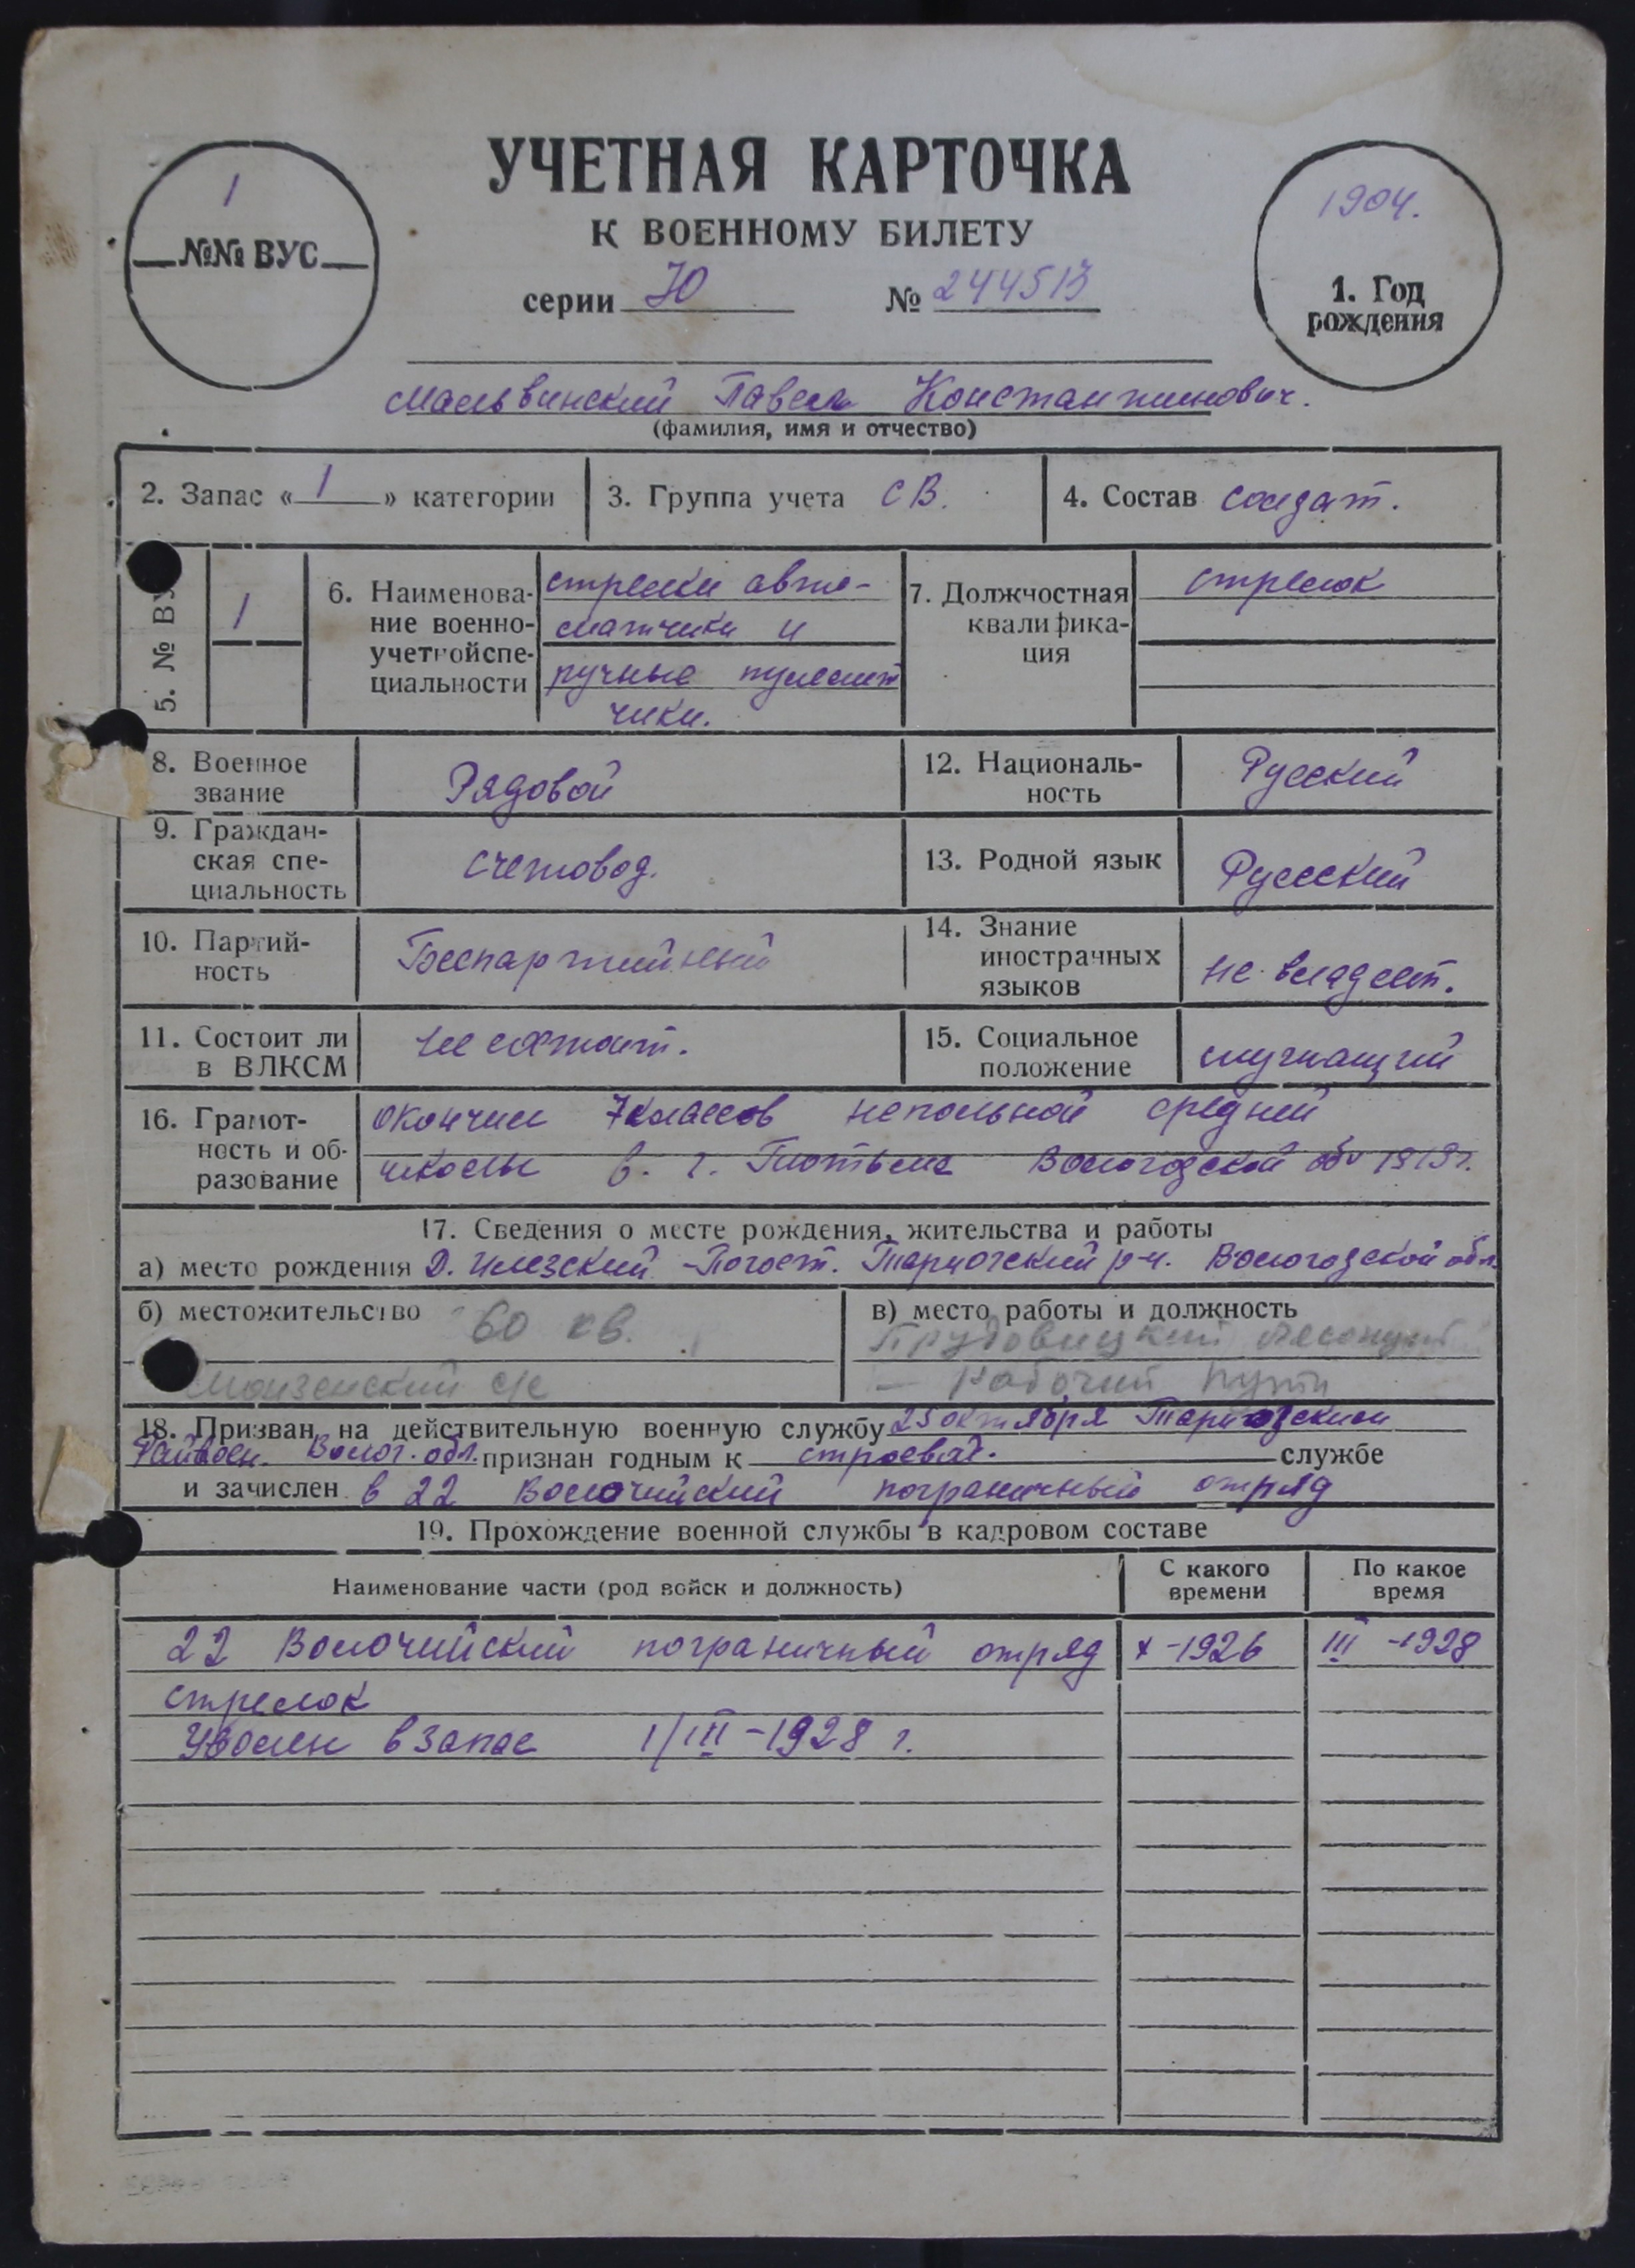 УЧЕТНАЯ КАРТОЧКА
К ВОЕННОМУ БИЛЕТУ
серии Ю № 244513
1
№№ ВУС
1904.
1. Год
рождения
Мальвинский Павел Константинович.
(фамилия, имя и отчество)
2. Запас «1» категории
3. Группа учета СВ.
4. Состав солдат.
5. № ВУ
1
6. Наименова-
ние военно-
учетной спе-
циальности
стрелки авто-
матчики и
ручные пулемет
чики.
7. Должностная
квалифика-
ция
стрелок
8. Военное
звание
Рядовой
12. Националь-
ность
Русский
9. Граждан-
ская спе-
циальность
счетовод.
13. Родной язык
Русский
10. Партий-
ность
Беспартийный
14. Знание
иностранных
языков
не владеет.
11. Состоит ли
в ВЛКСМ
не состоит.
15. Социальное
положение
служащий
16. Грамот-
ность и об-
разование
окончил 7 классов непольной средней
школы в. г. Тотьме Вологодской обл 1919 г.
17. Сведения о месте рождения, жительства и работы
а) место рождения Д. Илезский-Погост. Тарногский р-н. Вологодской обл.
б) местожительство 60 кв.
Монзенский с/с
в) место работы и должность
Трудовицкий
— рабочий пути
18. Призван на действительную военную службу 25 октября Тарногским
Райвоен. Волог. обл. признан годным к строевой. службе
и зачислен в 22 Волочийский пограничный отряд
19. Прохождение военной службы в кадровом составе
Наименование части (род войск и должность)
С какого
времени
По какое
время
22 Волочийский пограничный отряд X-1926 III-1928
стрелок
Уволен в запас 1/III-1928 г.